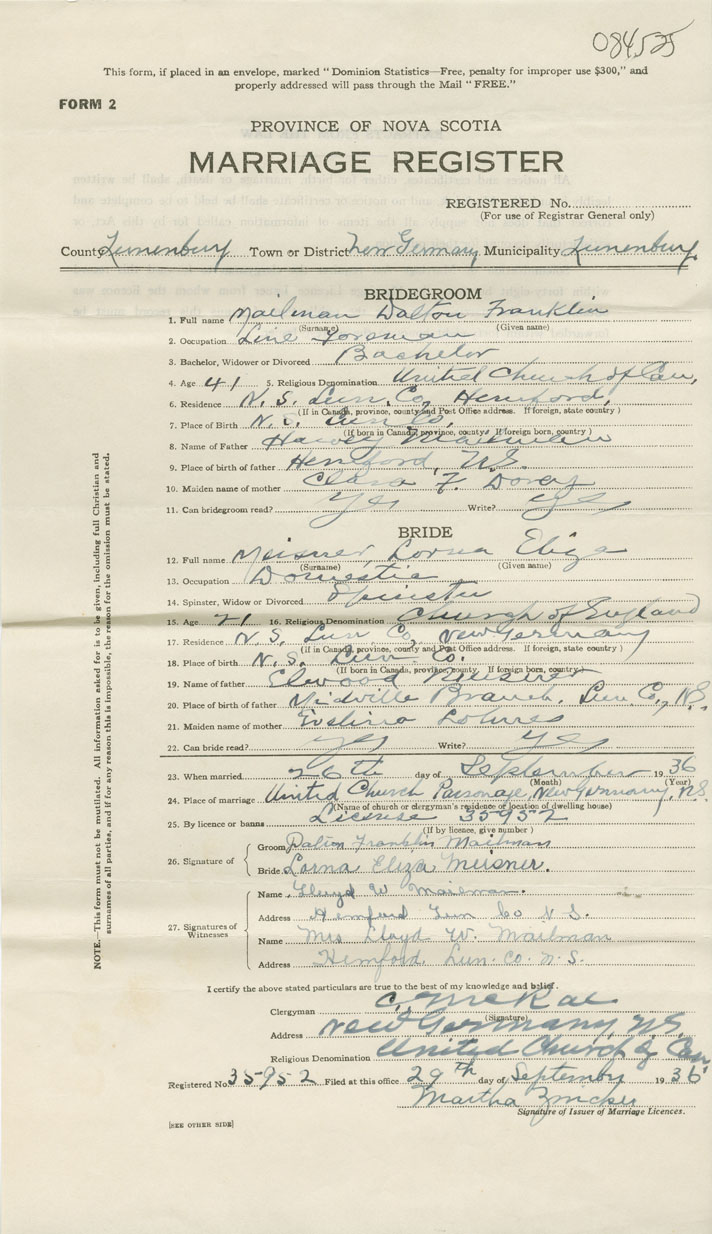 084525
This form, if placed in an envelope, marked "Dominion Statistics—Free, penalty for improper use $300," and
properly addressed will pass through the Mail "FREE."
FORM 2
PROVINCE OF NOVA SCOTIA
MARRIAGE REGISTER
REGISTERED No.
(For use of Registrar General only)
County Lunenburg Town or District New Germany Municipality Lunenburg
BRIDEGROOM
1. Full name Mailman Dalton Franklin
(Surname) (Given name)
2. Occupation Line Foreman
3. Bachelor, Widower or Divorced Bachelor
4. Age 41 5. Religious Denomination United Church of Can.
6. Residence N.S. Lun. Co. Hemford,
(If in Canada, province, county and Post Office address. If foreign, state country)
7. Place of Birth N.S. Lun Co,
(If born in Canada, province, county. If foreign born, country)
8. Name of Father Mailman
9. Place of birth of father Hemford, N.S.
10. Maiden name of mother Clara F.
11. Can bridegroom read? Yes Write? Yes
BRIDE
12. Full name Meisner, Lorna Eliza
(Surname) (Given name)
13. Occupation Domestic
14. Spinster, Widow or Divorced Spinster
15. Age 21 16. Religious Denomination Church of England
17. Residence N.S. Lun. Co, New Germany
(If in Canada, province, county and Post Office address. If foreign, state country)
18. Place of birth N.S. Lun. Co.
(If born in Canada, province, county. If foreign born, country)
19. Name of father Elwood Meisner
20. Place of birth of father Midville Branch, Lun. Co, N.S.
21. Maiden name of mother Evelina Lohnes
22. Can bride read? Yes Write? Yes
23. When married 26th day of September 1936
(Month) (Year)
24. Place of marriage United Church Parsonage, New Germany, N.S.
(Name of church or clergyman's residence or location of dwelling house)
25. By licence or banns License 35952
(If by licence, give number)
26. Signature of Groom Dalton Franklin Mailman
Bride Lorna Eliza Meisner.
27. Signatures of Witnesses Name Lloyd W. Mailman.
Address Hemford Lun Co N.S.
Name Mrs Lloyd W. Mailman
Address Hemford. Lun. Co. N.S.
NOTE.—This form must not be mutilated. All information asked for is to be given, including full Christian and
surnames of all parties, and if for any reason this is impossible, the reason for the omission must be stated.
I certify the above stated particulars are true to the best of my knowledge and belief.
Clergyman C. McRae
(Signature)
Address New Germany N.S.
Religious Denomination United Church of Can
Registered No. 35952 Filed at this office 29th day of September 1936
Martha
Signature of Issuer of Marriage Licences.
[SEE OTHER SIDE]